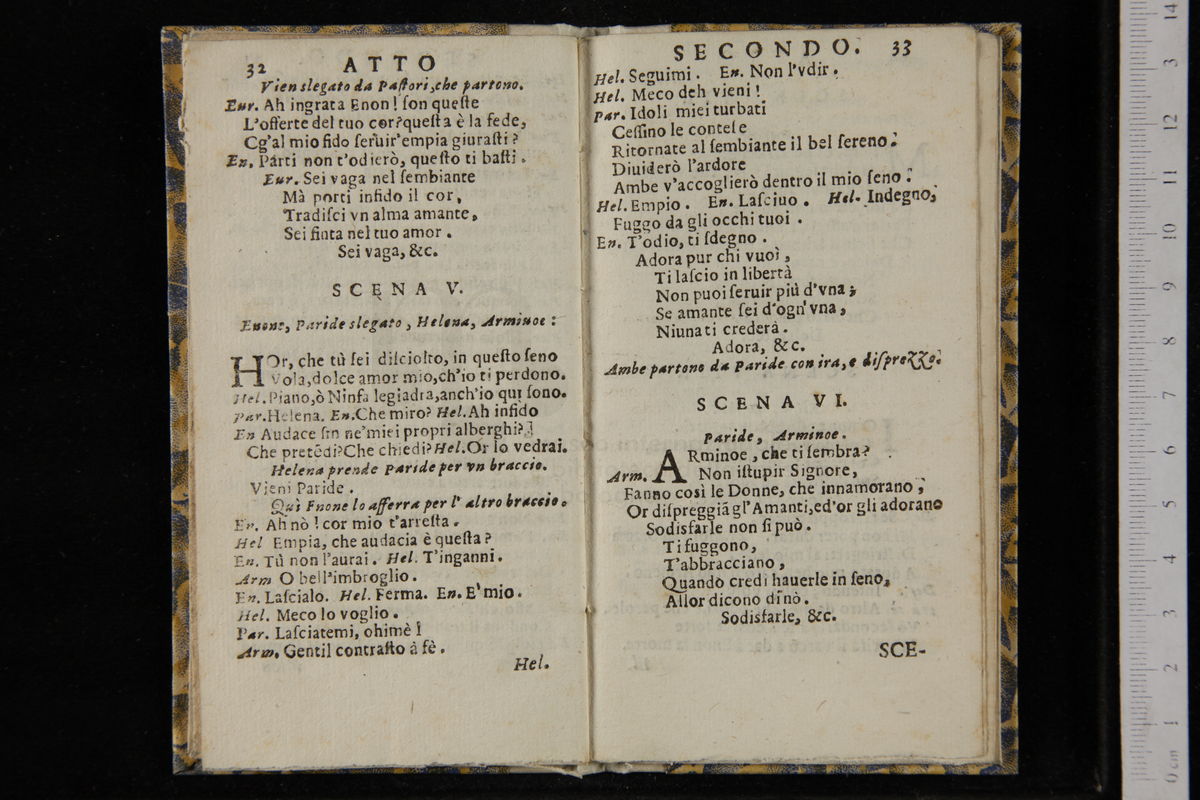 32 ATTO
Vien slegato da Paſtori, che partono.
Eur. Ah ingrata Enon! ſon queſte
L'offerte del tuo cor? queſta è la fede,
Cg'al mio fido ſeruir' empia giuraſti?
En. Parti non t'odierò, queſto ti baſti.
Eur. Sei vaga nel ſembiante
Mà porti infido il cor,
Tradiſci vn alma amante,
Sei finta nel tuo amor.
Sei vaga, &c.
SCENA V.
Enone, Paride slegato, Helena, Arminoe:
HOr, che tù ſei diſciolto, in queſto ſeno
Vola, dolce amor mio, ch'io ti perdono.
Hel. Piano, ò Ninfa legiadra, anch'io qui ſono.
Par. Helena. En. Che miro? Hel. Ah infido
En Audace ſin ne' miei propri alberghi?
Che pretēdi? Che chiedi? Hel. Or lo vedrai.
Helena prende Paride per vn braccio.
Vieni Paride.
Qui Enone lo afferra per l' altro braccio.
En. Ah nò! cor mio t'arreſta.
Hel Empia, che audacia è queſta?
En. Tù non l'aurai. Hel. T'inganni.
Arm O bell'imbroglio.
En. Laſcialo. Hel. Ferma. En. E' mio.
Hel. Meco lo voglio.
Par. Laſciatemi, ohimè!
Arm. Gentil contraſto à fè.
Hel.
SECONDO. 33
Hel. Seguimi. En. Non l'vdir.
Hel. Meco deh vieni!
Par. Idoli miei turbati
Ceſſino le conteſe
Ritornate al ſembiante il bel ſereno.
Diuiderò l'ardore
Ambe v'accoglierò dentro il mio ſeno.
Hel. Empio. En. Laſciuo. Hel. Indegno,
Fuggo da gli occhi tuoi.
En. T'odio, ti ſdegno.
Adora pur chi vuoi,
Ti laſcio in libertà
Non puoi ſeruir più d'vna;
Se amante ſei d'ogn'vna,
Niuna ti crederà.
Adora, &c.
Ambe partono da Paride con ira, e diſprezzo.
SCENA VI.
Paride, Arminoe.
ARminoe, che ti ſembra?
Arm. Non iſtupir Signore,
Fanno così le Donne, che innamorano;
Or diſpreggiā gl'Amanti, ed'or gli adorano
Sodisfarle non ſi può.
Ti fuggono,
T'abbracciano,
Quando credi hauerle in ſeno,
Allor dicono di nò.
Sodisfarle, &c.
SCE-
14
3
12
11
10
9
8
7
6
5
4
3
2
1
0 cm